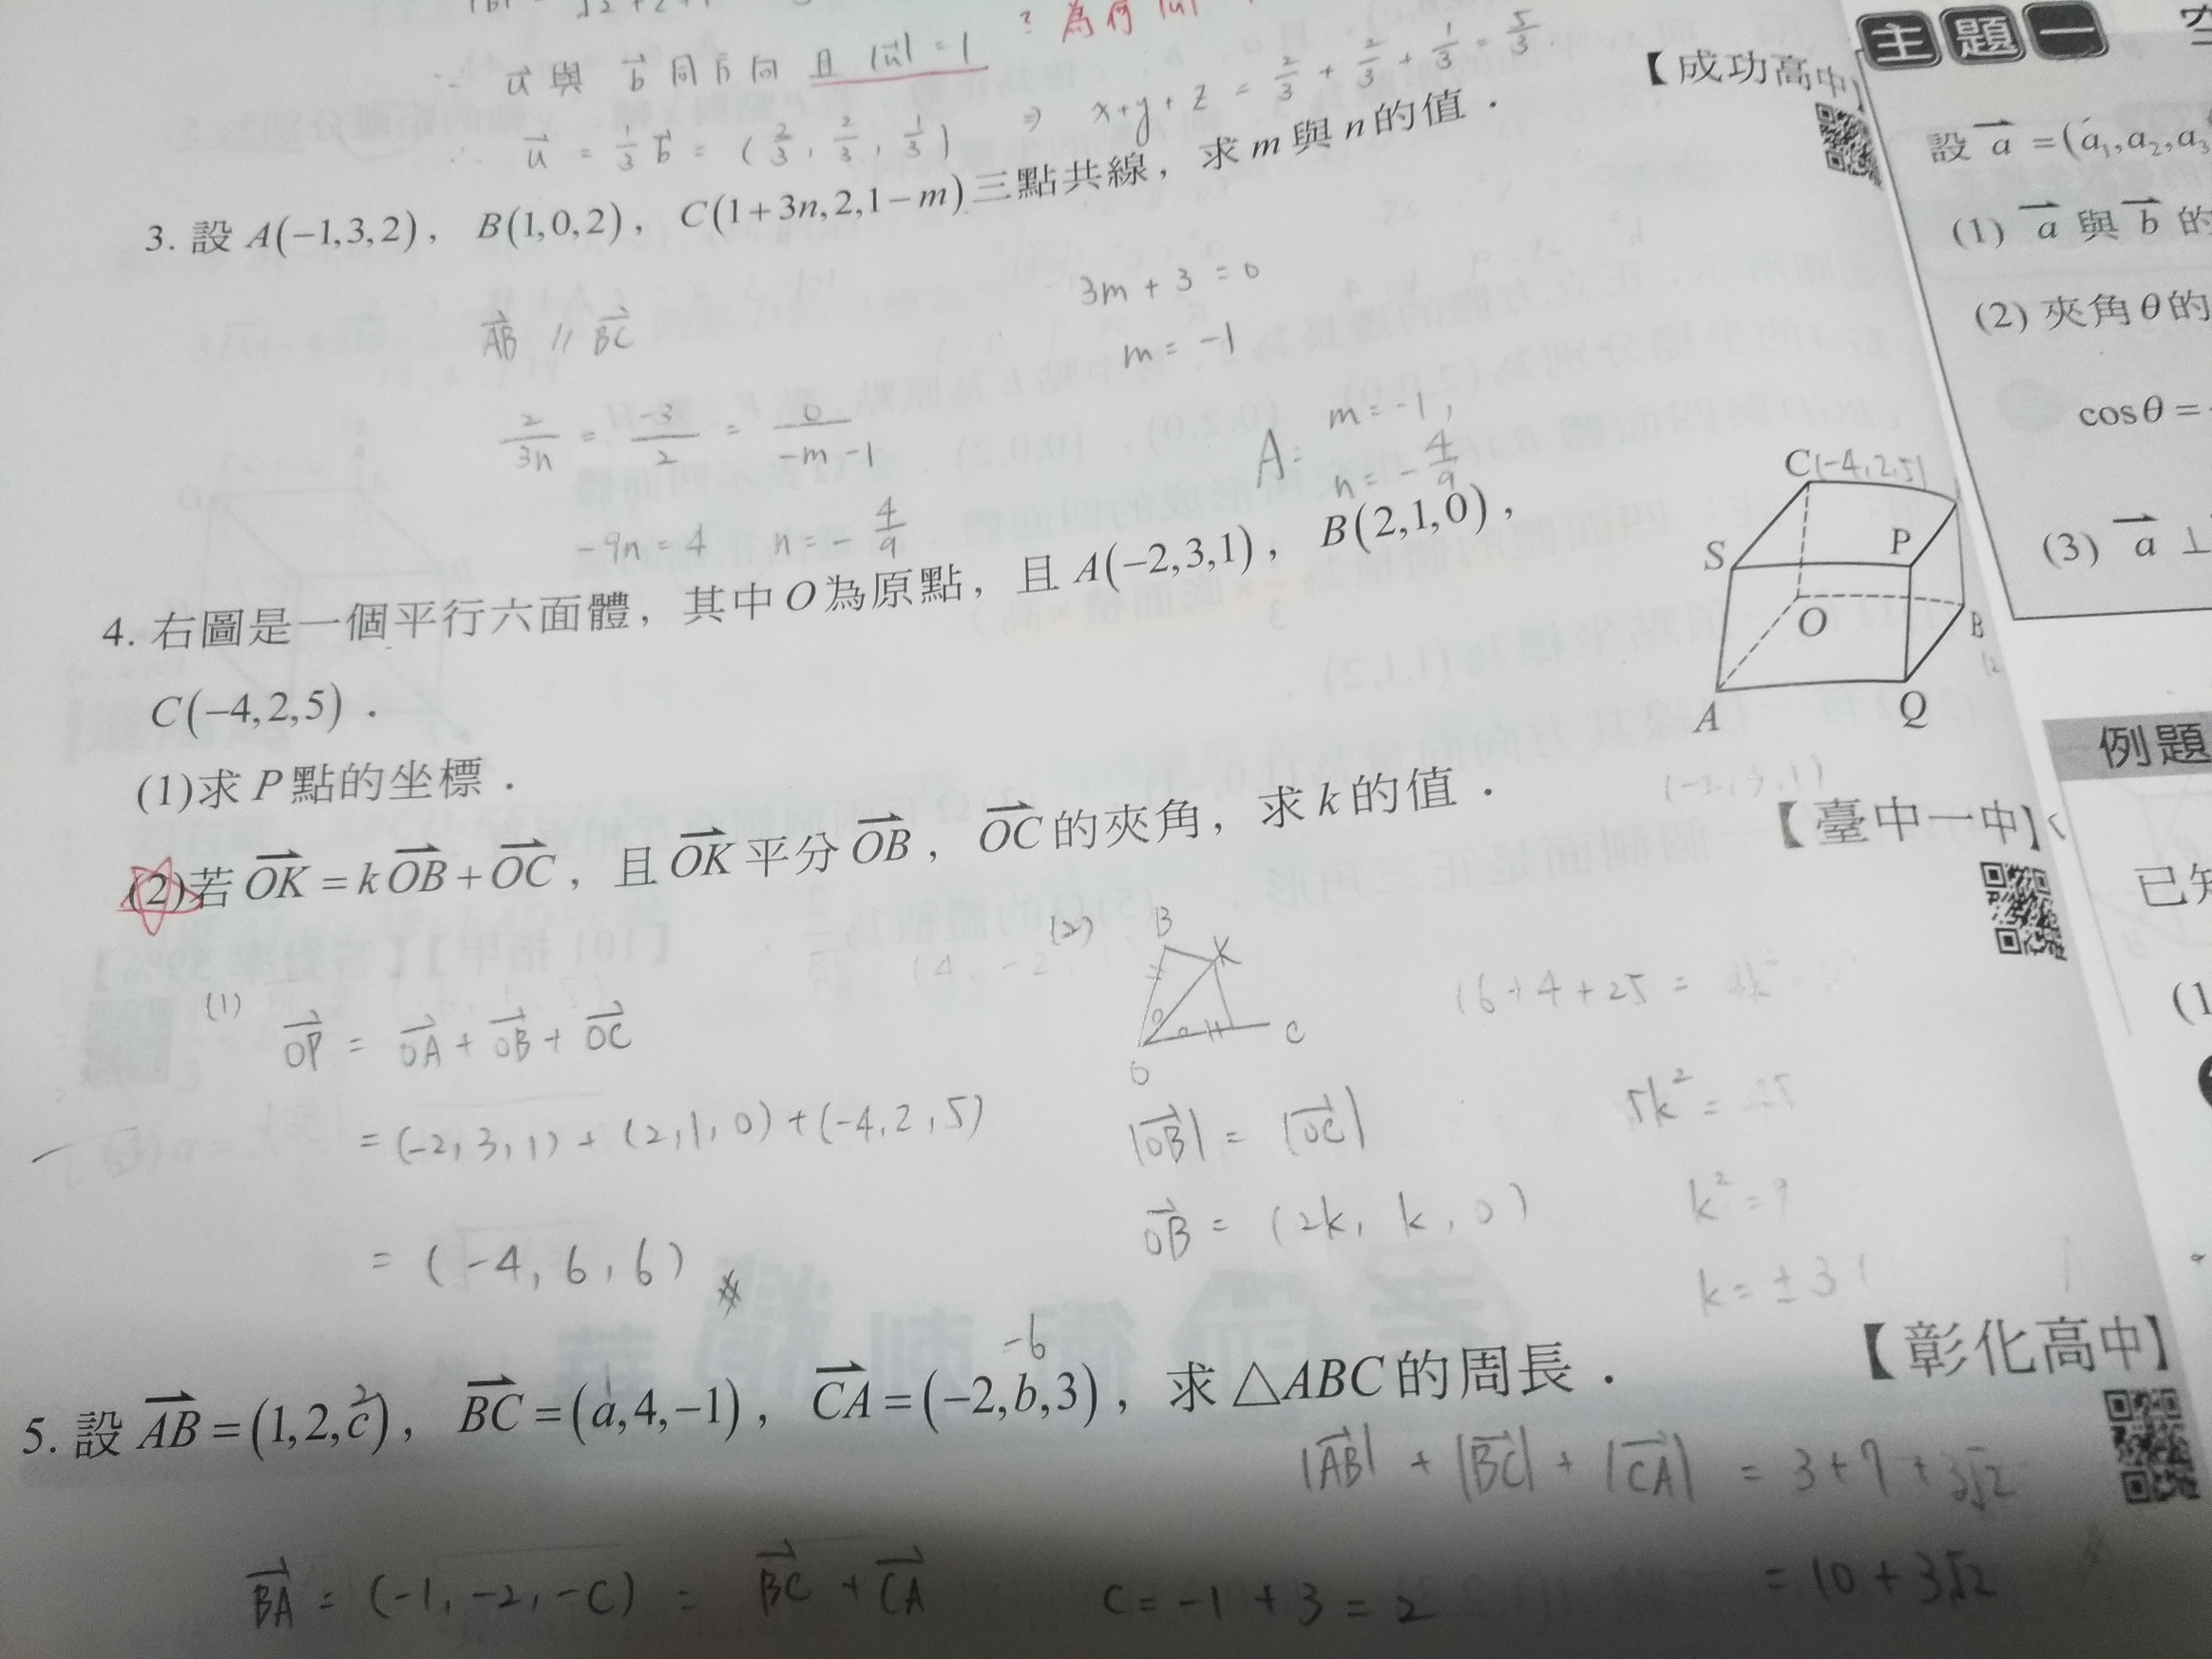 ? 為何 |u|
∵ u 與 b 同方向 且 |u| = 1
∴ u = 1/3 b = (2/3, 2/3, 1/3) ⇒ x+y+z = 2/3 + 2/3 + 1/3 = 5/3
【成功高中】
3. 設 A(−1,3,2), B(1,0,2), C(1+3n,2,1−m) 三點共線, 求 m 與 n 的值.
AB // BC
3m + 3 = 0
m = -1
2/3n = -3/2 = 0/-m-1
A: m = -1,
n = -4/9
-9n = 4 n = -4/9
4. 右圖是一個平行六面體, 其中 O 為原點, 且 A(−2,3,1), B(2,1,0),
C(−4,2,5).
C(-4,2,5)
S P
O B
A Q
(1)求 P 點的坐標.
(2)若 OK = kOB + OC, 且 OK 平分 OB, OC 的夾角, 求 k 的值.
【臺中一中】
(1) OP = OA + OB + OC
= (-2,3,1) + (2,1,0) + (-4,2,5)
= (-4,6,6)
(2)
B K
O C
|OB| = |OC|
OB = (2k, k, 0)
16+4+25 =
5k² =
k² = 9
k = ±3
5. 設 AB = (1,2,c), BC = (a,4,−1), CA = (−2,b,3), 求 △ABC 的周長.
2 1 -6
【彰化高中】
|AB| + |BC| + |CA| = 3+7+3√2
= 10+3√2
BA = (-1,-2,-c) = BC + CA c = -1+3 = 2
主題一
設 a = (a₁,a₂,a₃
(1) a 與 b 的
(2) 夾角 θ 的
cosθ =
(3) a ⊥
例題
已知
(1